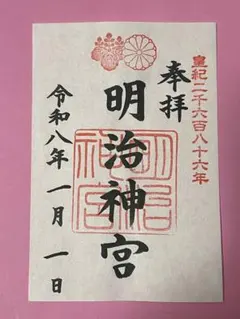 皇紀二千六百八十六年
奉拝
明治神宮
明治神宮
令和八年一月一日